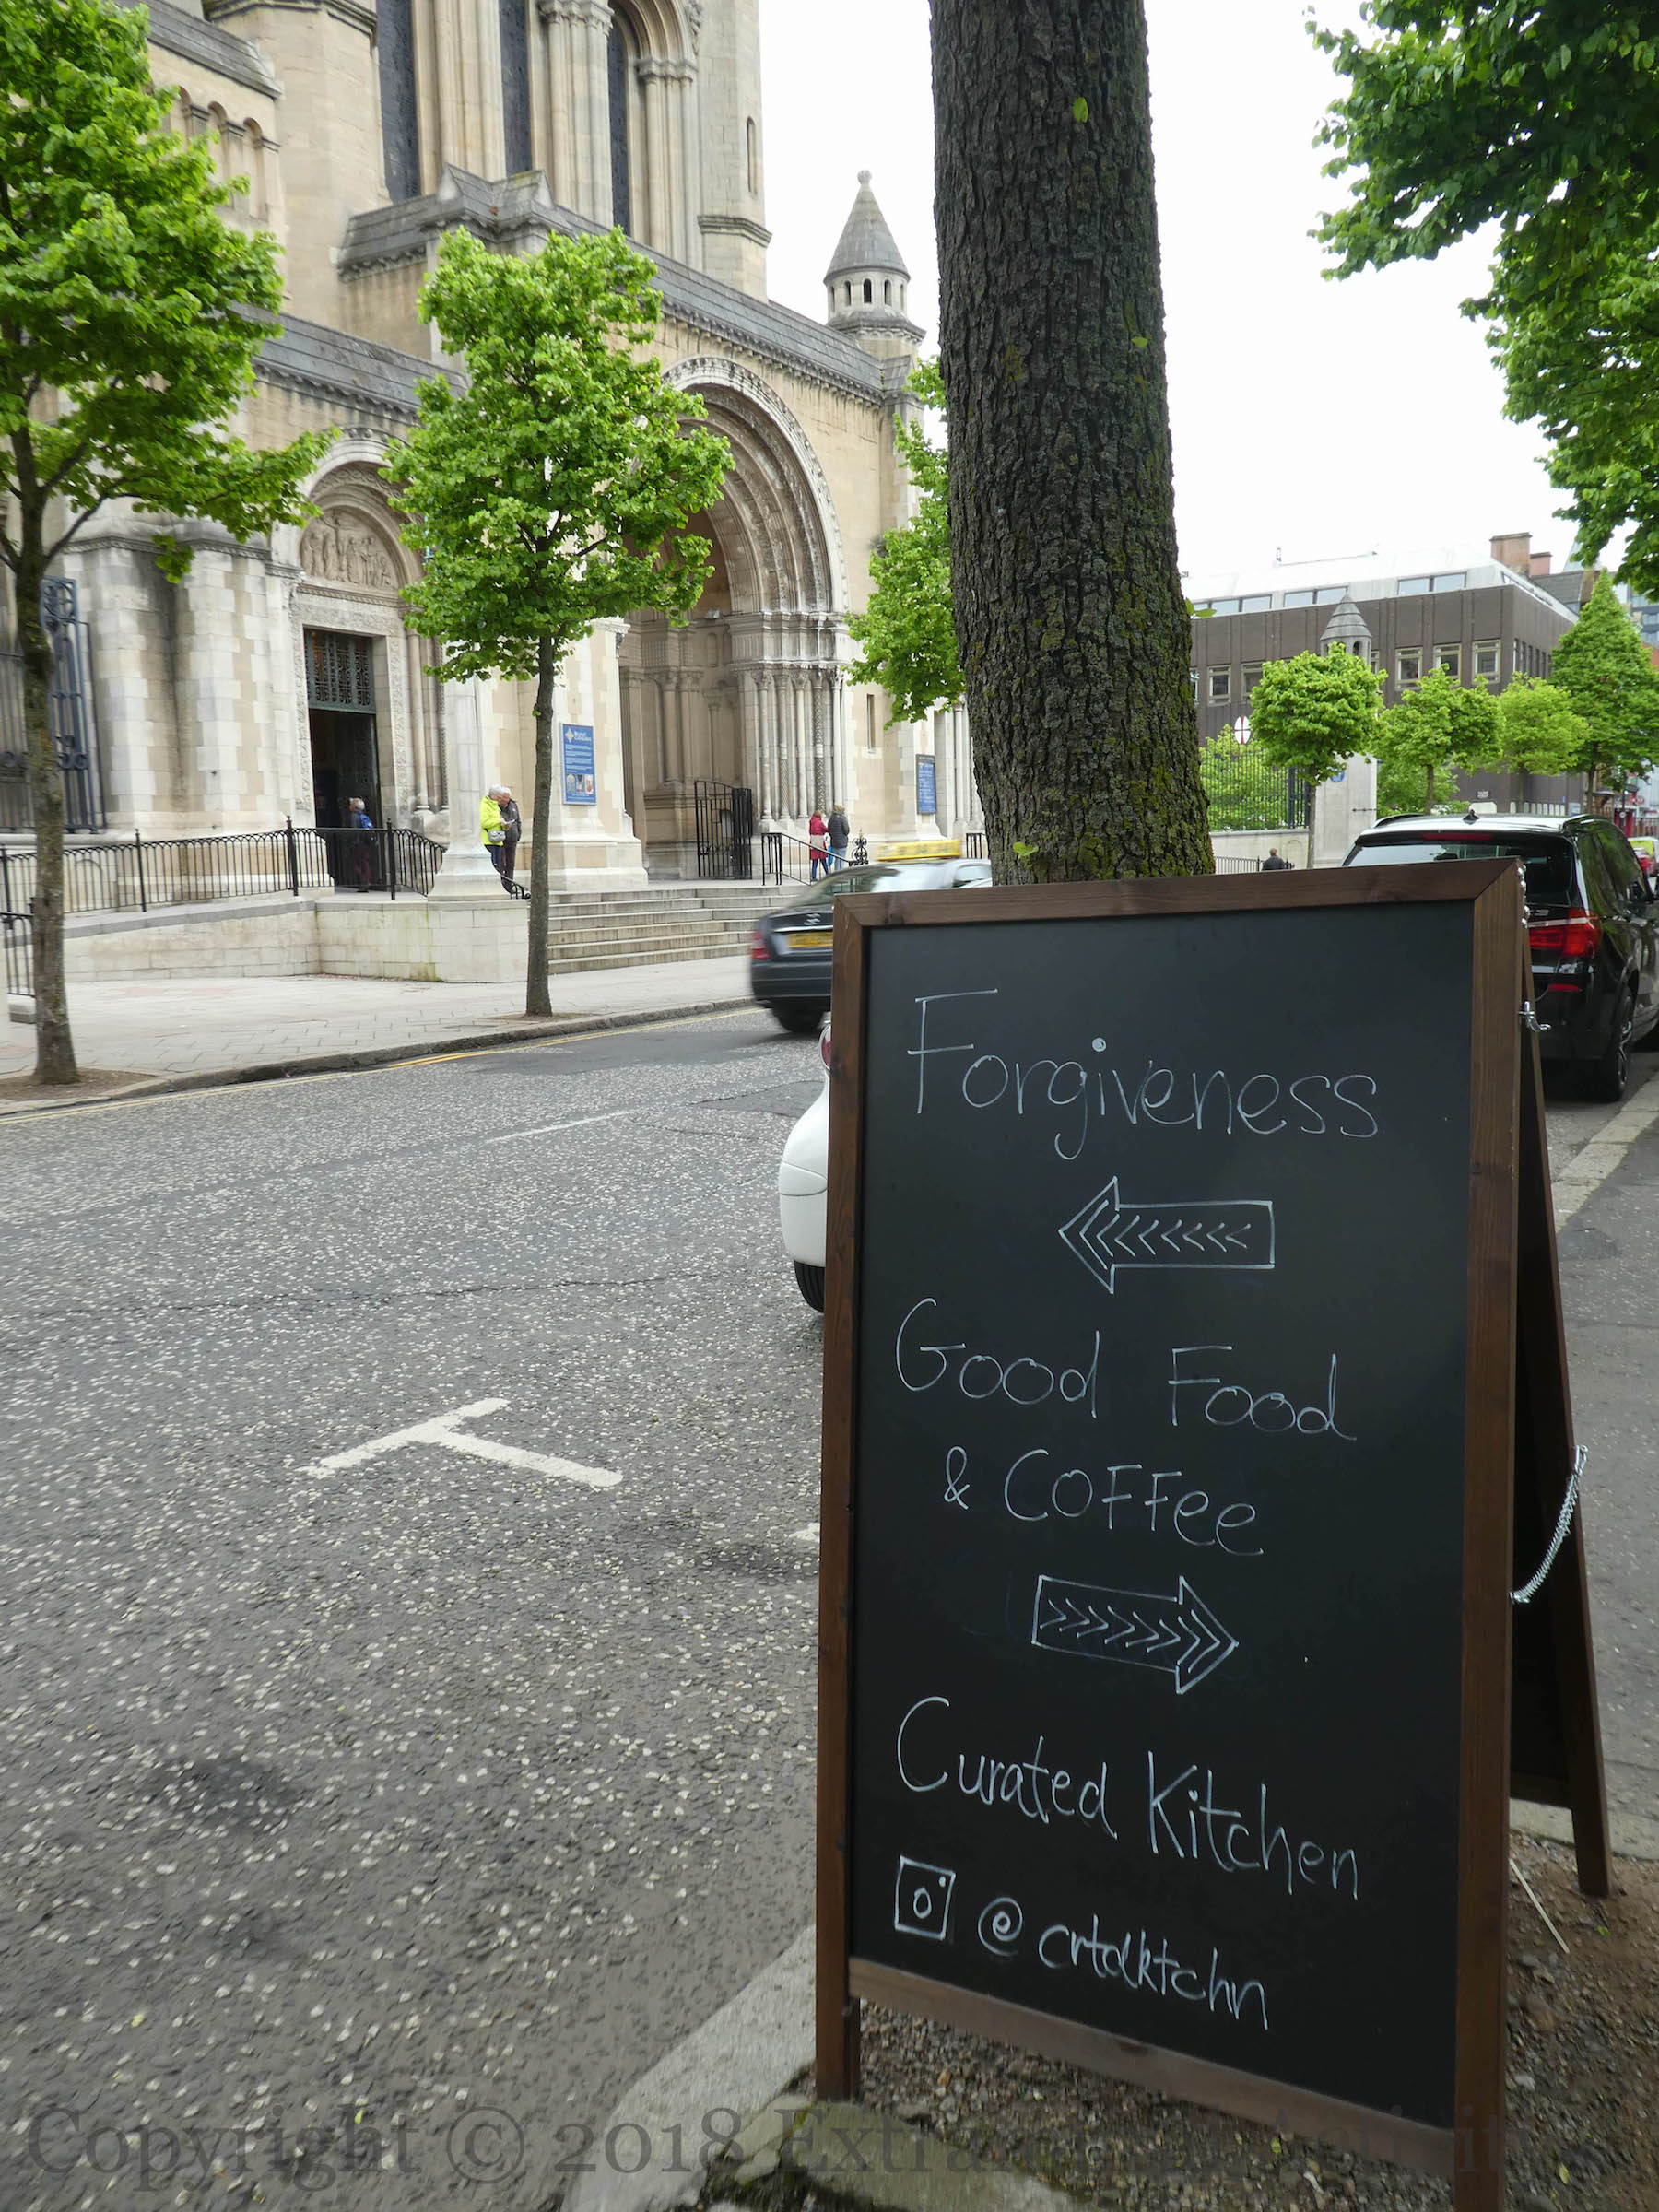 Forgiveness
Good Food
& Coffee
Curated Kitchen
@crtdktchn
Copyright © 2018